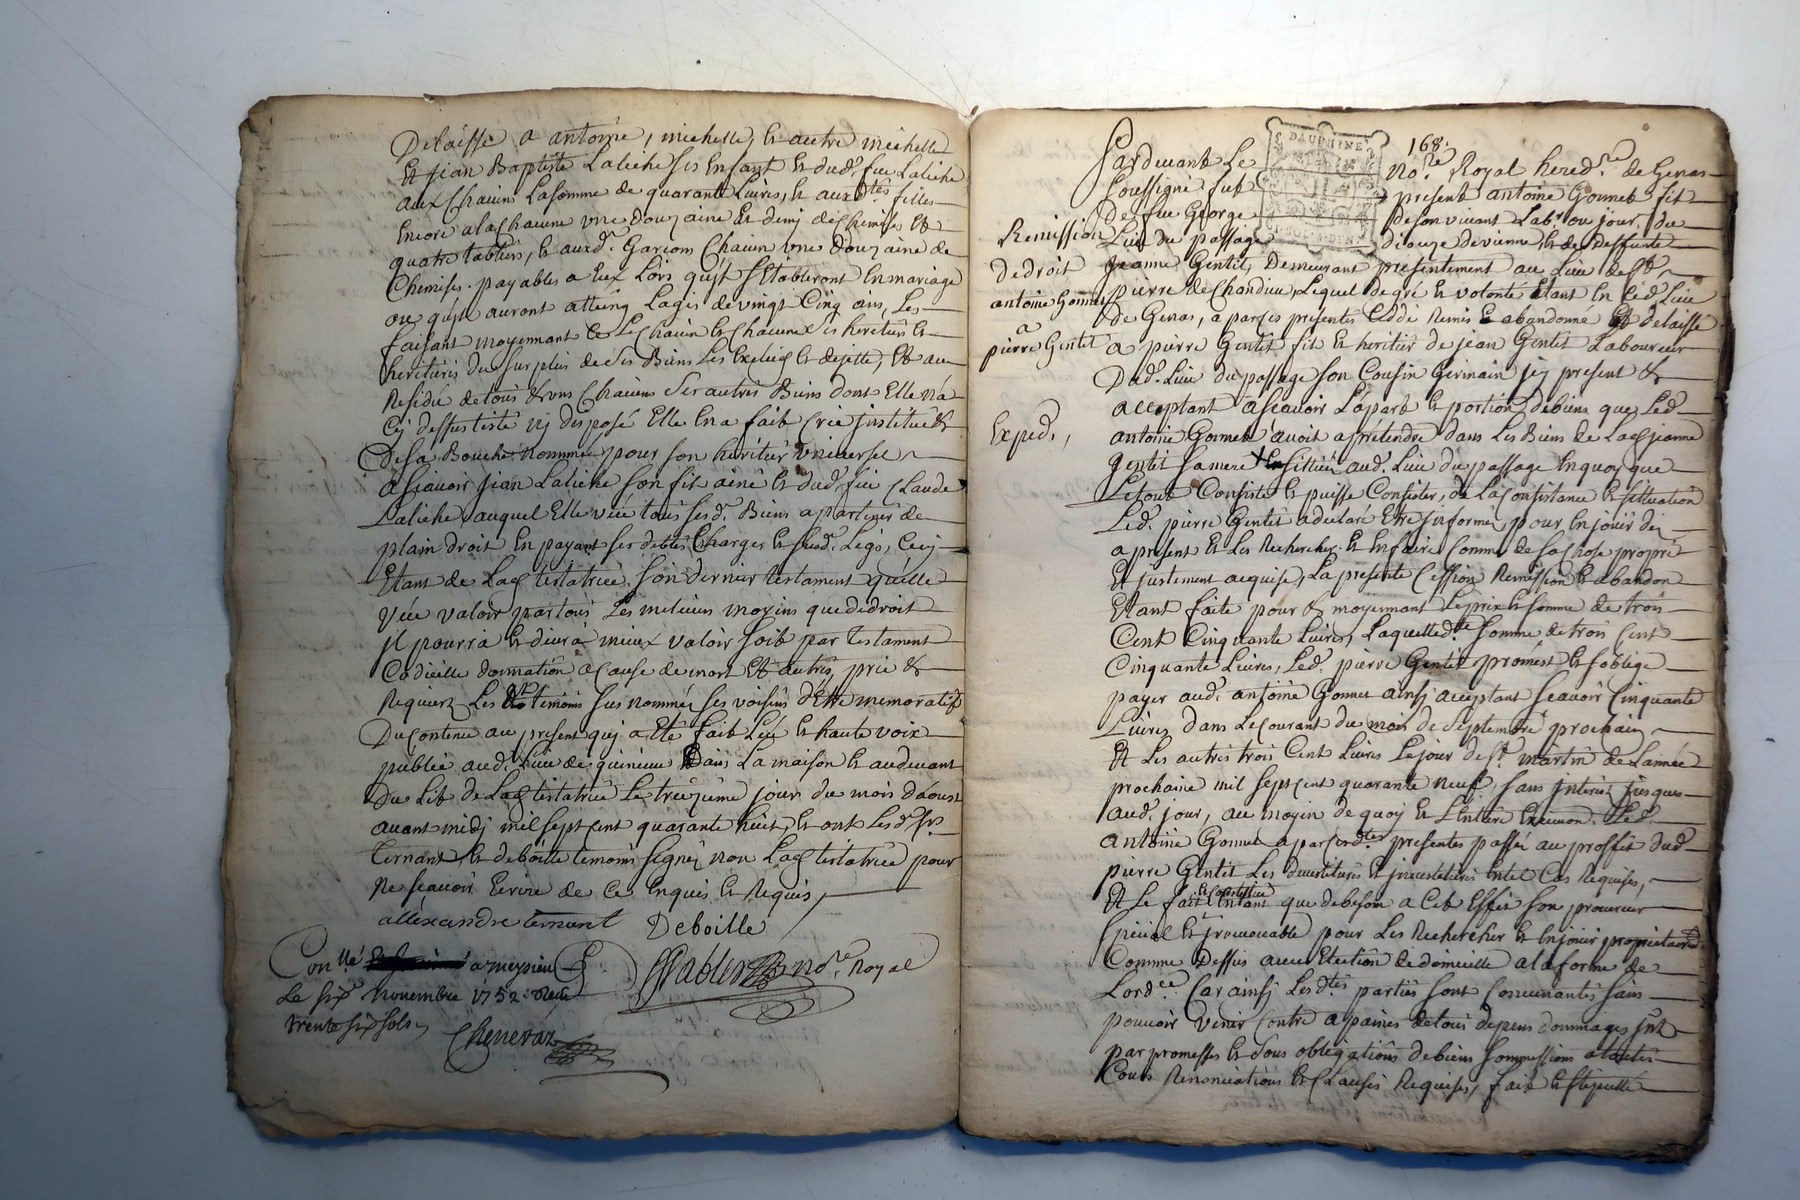 Delaisse a antoine, michelle, & autre michelle
Et jean Baptiste Laliche ses Enfant & dud. feu Laliche
aux Chacuns La somme de quarante Livres, & auxd.tes filles
Encore a la Chacune une Douzaine Et demy de Chemises Et
quatre tabliers, & auxd. Garcons Chacun une Douzaine de
Chemises. payables a Eux Lors quils S'Etabliront En mariage
ou quils auront atteing Lages de vingt Cinq ans, Les
faisant moyennant ce Le Chacun & Chacune ses heretiers &
heritieres du surplus de ses Biens Les Exclus & dejette, Et au
Residu de tous & uns Chacuns Ses autres Biens dont Elle n'a
Cy dessus testé ny disposé Elle En a fait Crée jnstitué &
De sa Bouche nommé pour son heritier universel
a Scavoir jean Laliche son fils ainé & dud. feu Claude
Laliche auquel Elle veut tous sesd. Biens apartenir de
plain droit En payant ses debtes Charges & susd. Legs, Cecy
Etant de Lad. testatrice son dernier testament quelle
veut valoir par tous Les melieurs moyens que de droit
jl pourra & devra mieux valoir soit par testament
Codicille donnation a Cause de mort Et autres, prie &
Requierz Les temoins sus nommés ses voisins d'Etre memoratifs
Du Contenu au present quy a Eté fait Leu & haute voix
publié aud. Lieu de quincieux Dans La maison & audevant
Du Lit de Lad. testatrice Le treizieme jour du mois d'aoust
avant midy mil sept cent quarante huit, & ont Lesd. Srs
Ternant & deboille temoins signés non Lad. testatrice pour
Ne scavoir Ecrire de Ce Enquis & Requis,
allexandre ternant Deboille
Con.llé a meysieu
Le six novembre 1752. Recu
trente six sols
Sablier no.re Royal
Chenevaz
168.
Pardevant Le No.re Royal hered.re de Genas
Soussigné fut present antoine Gonnet fils
de feu George de son vivant Lab.r ou jour. du
Lieu du passage dioceze de vienne, & de deffunte
Remission
De droit
antoine Gonnet
a
pierre Gentet
Jeanne Gentet, Demeurant presentement au Lieu de St
pierre de Chandieu, Lequel de gré & volonté Etant En Céd. Lieu
De Genas, a par ces presentes Cedde Remis & abandonné Et delaissé
a pierre Gentet fils & heritier de jean Gentet Laboureur
Dud. Lieu du passage son Cousin Germain jcy present &
acceptant a Scavoir La part & portion de biens que Led.
Exped.,
antoine Gonnet avoit a pretendre dans Les Biens de Lad. jeanne
gentet sa mere & sittués aud. Lieu du passage En quoy que
Le tout Consiste & puisse Consister, de La Consistance & sittuation
Led. pierre Gentet a declaré Etre jnformé pour En jouir dez
a present Et Les Rechercher & En faire Comme de sa Chose propre
Et justement acquise, La presente Cession Remission & abandon
Etant faite pour & moyennant Le prix & somme de trois
Cent Cinquante Livres, Laquelled.te somme de trois Cent
Cinquante Livres, Led. pierre Gentet promest & s'oblige
payer aud. antoine Gonnet ainsi acceptant Scavoir Cinquante
Livres dans Le Courant du mois de Septembre prochain
Et Les autres trois Cent Livres Le jour de St. martin de Lannée
prochaine mil sept cent quarante neuf, sans jnterest jusques
aud. jour, au moyen de quoy & L'Entiere Execuon. Led.
Antoine Gonnet a par sesd.tes presentes passés au proffit dud.
pierre Gentet Les devestitures & jnvestitures En tel Cas Requises,
Et Le fait & Constitue Entant que de besoin a Cet Effet son procureur
special & jrrevocable pour Les Rechercher & En jouir propriétairem.t
Comme Dessus avec Election de domicille a la forme de
Lord.ce Car ainsi Lesd.tes parties sont Convenantes sans
pouvoir venir Contre a paines de tous depens dommages jnt.
par promesses & sous obligations de biens sommissions a toutes
Cours Renonciations & Clauses Requises, fait & stipullé